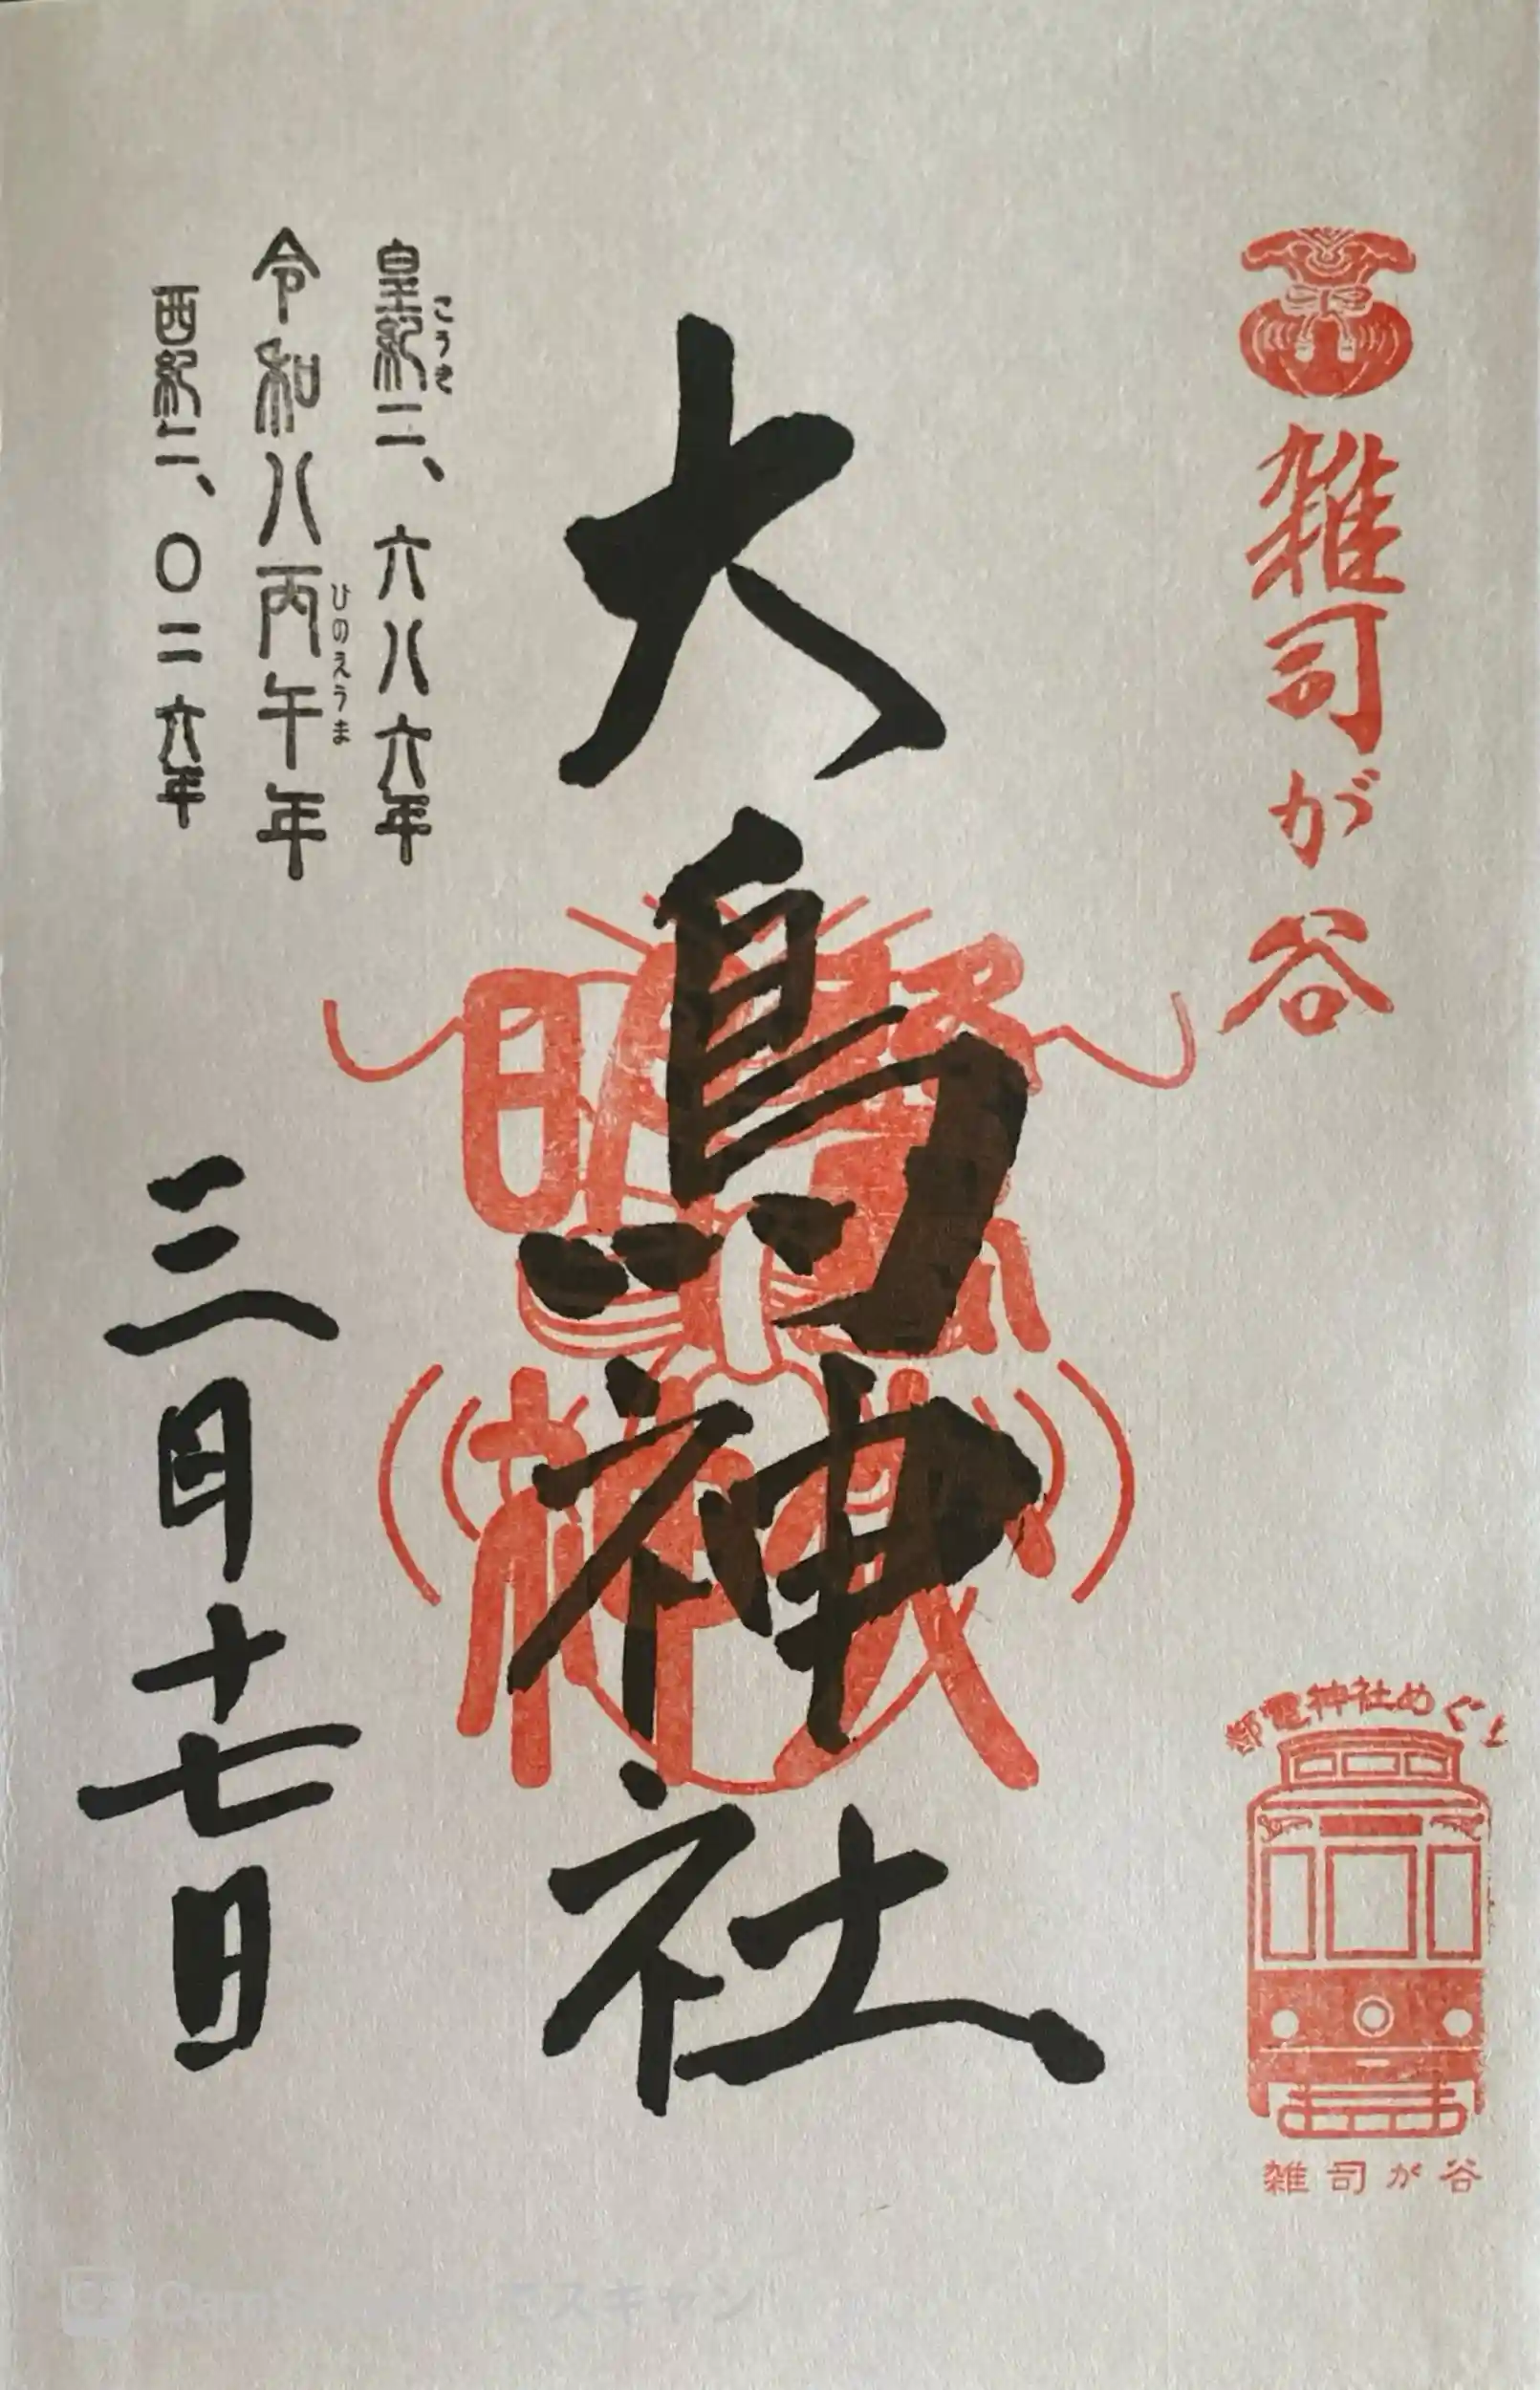 雑司が谷
都電神社めぐり
雑司が谷
大鳥神社
皇紀二、六八六年
こうき
令和八丙午年
ひのえうま
西紀二、〇二六年
三月十七日